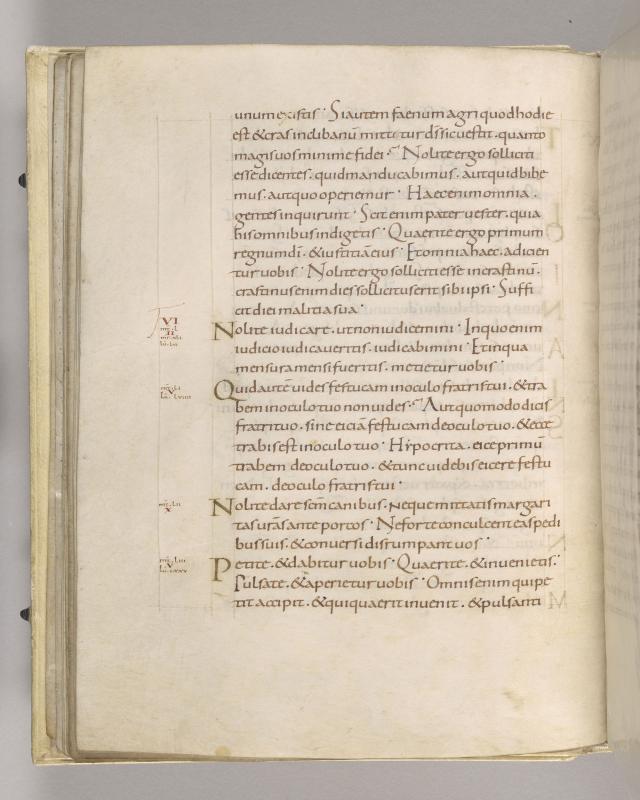 unum ex istis · Si autem faenum agri quod hodie
est & cras in clibanū mittitur dſ sic uestit · quanto
magis uos minime fidei · Nolite ergo solliciti
esse dicentes · quid manducabimus · aut quid bibe
mus · aut quo operiemur · Haec enim omnia ·
gentes inquirunt · Scit enim pater uester · quia
his omnibus indigetis · Quaerite ergo primum
regnum dī · & iustitiā eius · Et omnia haec · adicien
tur uobis · Nolite ergo solliciti esse in crastinū ·
crastinus enim dies sollicitus erit sibi ipsi · Suffi
cit diei malitia sua ·
VI
II
Nolite iudicare · ut non iudicemini · In quo enim
iudicio iudicaueritis · iudicabimini · Et in qua
mensura mensi fueritis · metietur uobis ·
V
Quid autē uides festucam in oculo fratris tui · & tra
bem in oculo tuo non uides · Aut quomodo dicis
fratri tuo · sine eiciā festucam de oculo tuo · & ecce
trabis est in oculo tuo · Hypocrita · eice primū
trabem de oculo tuo · & tunc uidebis eicere festu
cam · de oculo fratris tui ·
X
Nolite dare scm̄ canibus · neque mittatis margari
tas urās ante porcos · Ne forte conculcent eas pedi
bus suis · & conuersi disrumpant uos ·
V
Petite · & dabitur uobis · Quaerite · & inuenietis ·
Pulsate · & aperietur uobis · Omnis enim qui pe
tit accipit · & qui quaerit inuenit · & pulsanti